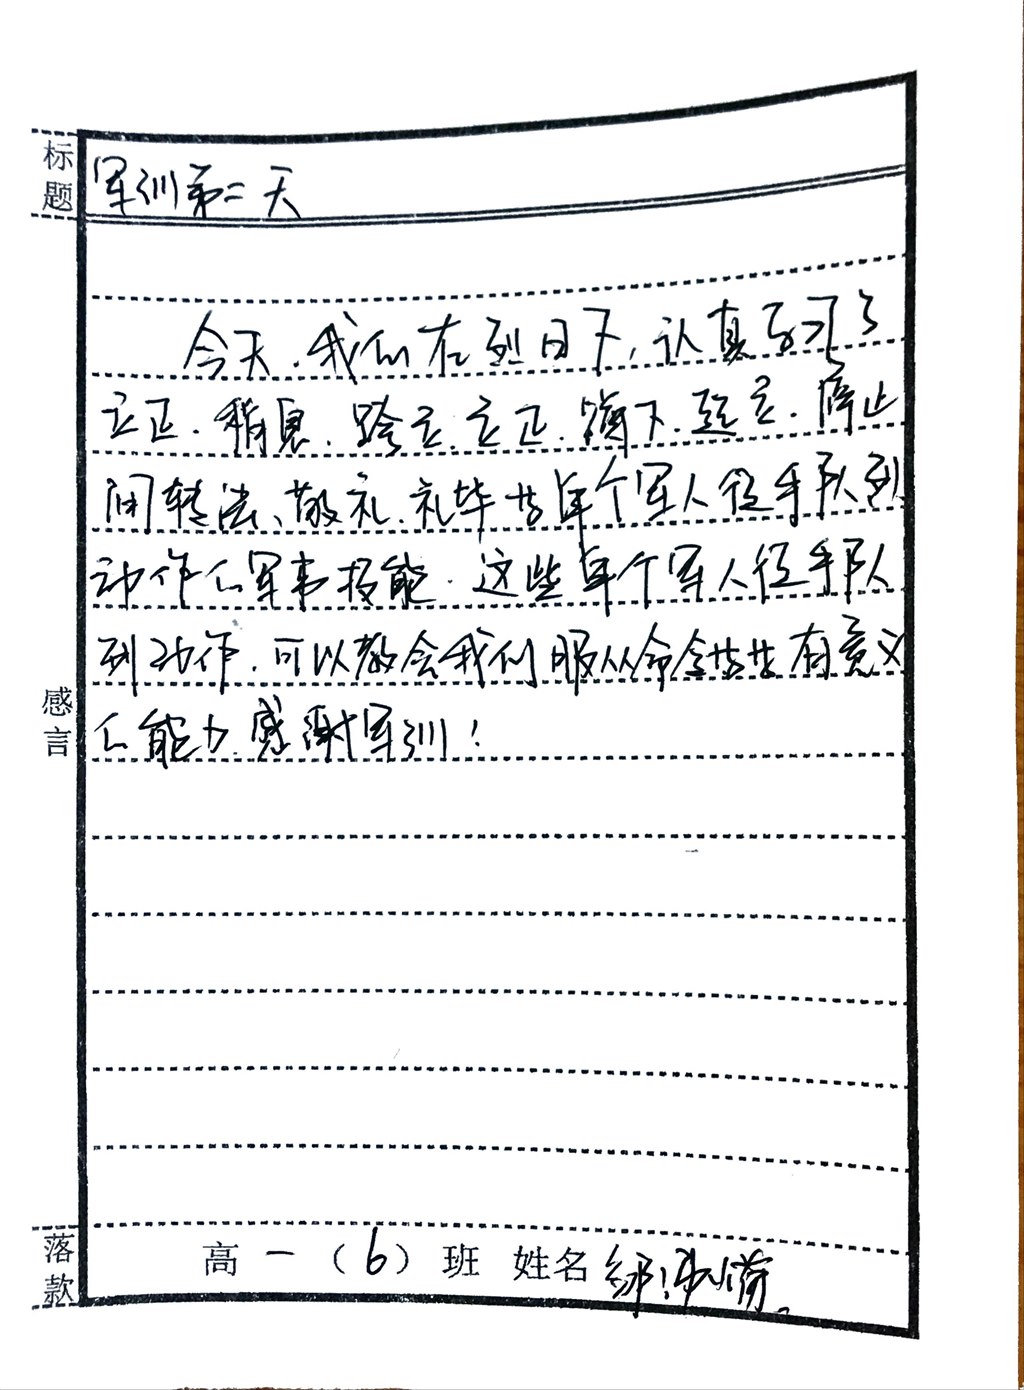 标题
军训第二天
今天,我们在烈日下,认真学习了
立正、稍息、跨立、立正、蹲下、起立、停止
间转法、敬礼、礼毕等单个军人徒手队列
动作的军事技能。这些单个军人徒手队
列动作,可以教会我们服从命令等等有意义
的能力。感谢军训!
感言
落款
高一(6)班 姓名